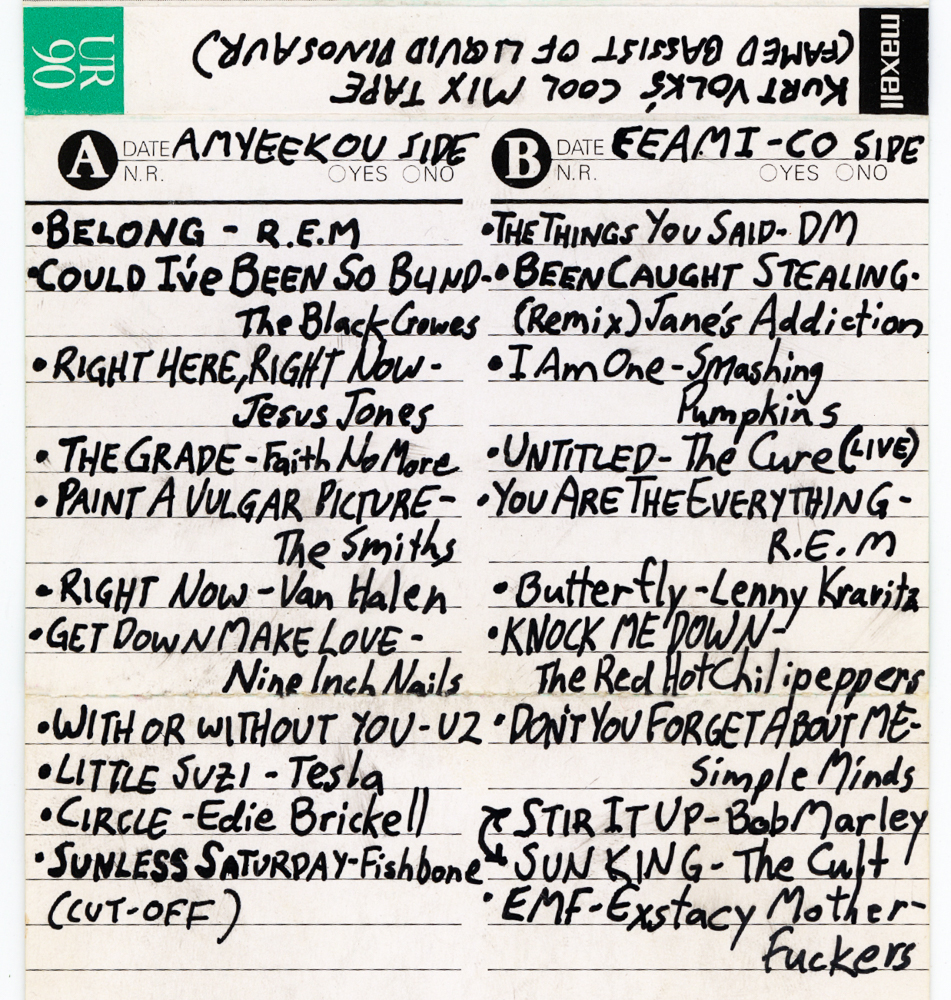 KURT VOLK'S COOL MIX TAPE
(FAMED BASSIST OF LIQUID DINOSAUR)
UR
90
maxell
A DATE AMYEEKOU SIDE
N.R. YES NO
•BELONG - R.E.M
•COULD I've BEEN SO BLIND-
The Black Crowes
•RIGHT HERE, RIGHT NOW-
Jesus Jones
•THE GRADE-Faith No More
•PAINT A VULGAR PICTURE-
The Smiths
•RIGHT NOW-Van Halen
•GET DOWN MAKE LOVE-
Nine Inch Nails
•WITH OR WITHOUT YOU-U2
•LITTLE SUZI - Tesla
•CIRCLE -Edie Brickell
•SUNLESS SATURDAY-Fishbone
(CUT-OFF)
B DATE EEAMI-CO SIDE
N.R. YES NO
•THE THINGS YOU SAID-DM
•BEEN CAUGHT STEALING-
(Remix) Jane's Addiction
•I Am One-Smashing
Pumpkins
•UNTITLED-The Cure (LIVE)
•YOU ARE THE EVERYTHING-
R.E.M
•Butterfly-Lenny Kravitz
•KNOCK ME DOWN-
The Red Hot Chilipeppers
•DON'T YOU FORGET ABOUT ME-
Simple Minds
STIR IT UP-Bob Marley
SUN KING - The Cult
•EMF-Exstacy Mother-
Fuckers